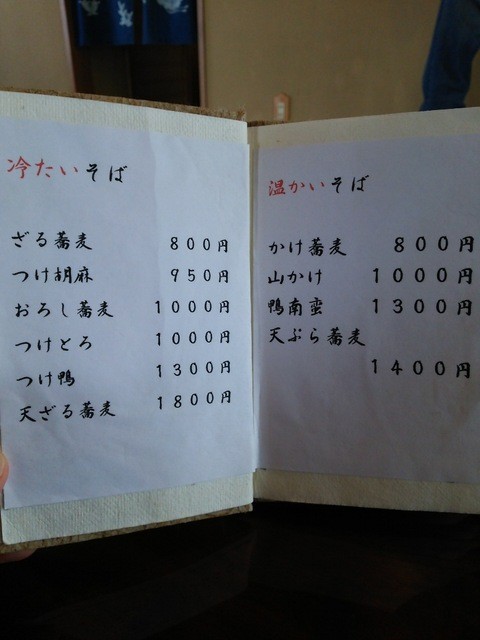 冷たいそば
ざる蕎麦 800円
つけ胡麻 950円
おろし蕎麦 1000円
つけとろ 1000円
つけ鴨 1300円
天ざる蕎麦 1800円
温かいそば
かけ蕎麦 800円
山かけ 1000円
鴨南蛮 1300円
天ぷら蕎麦
1400円